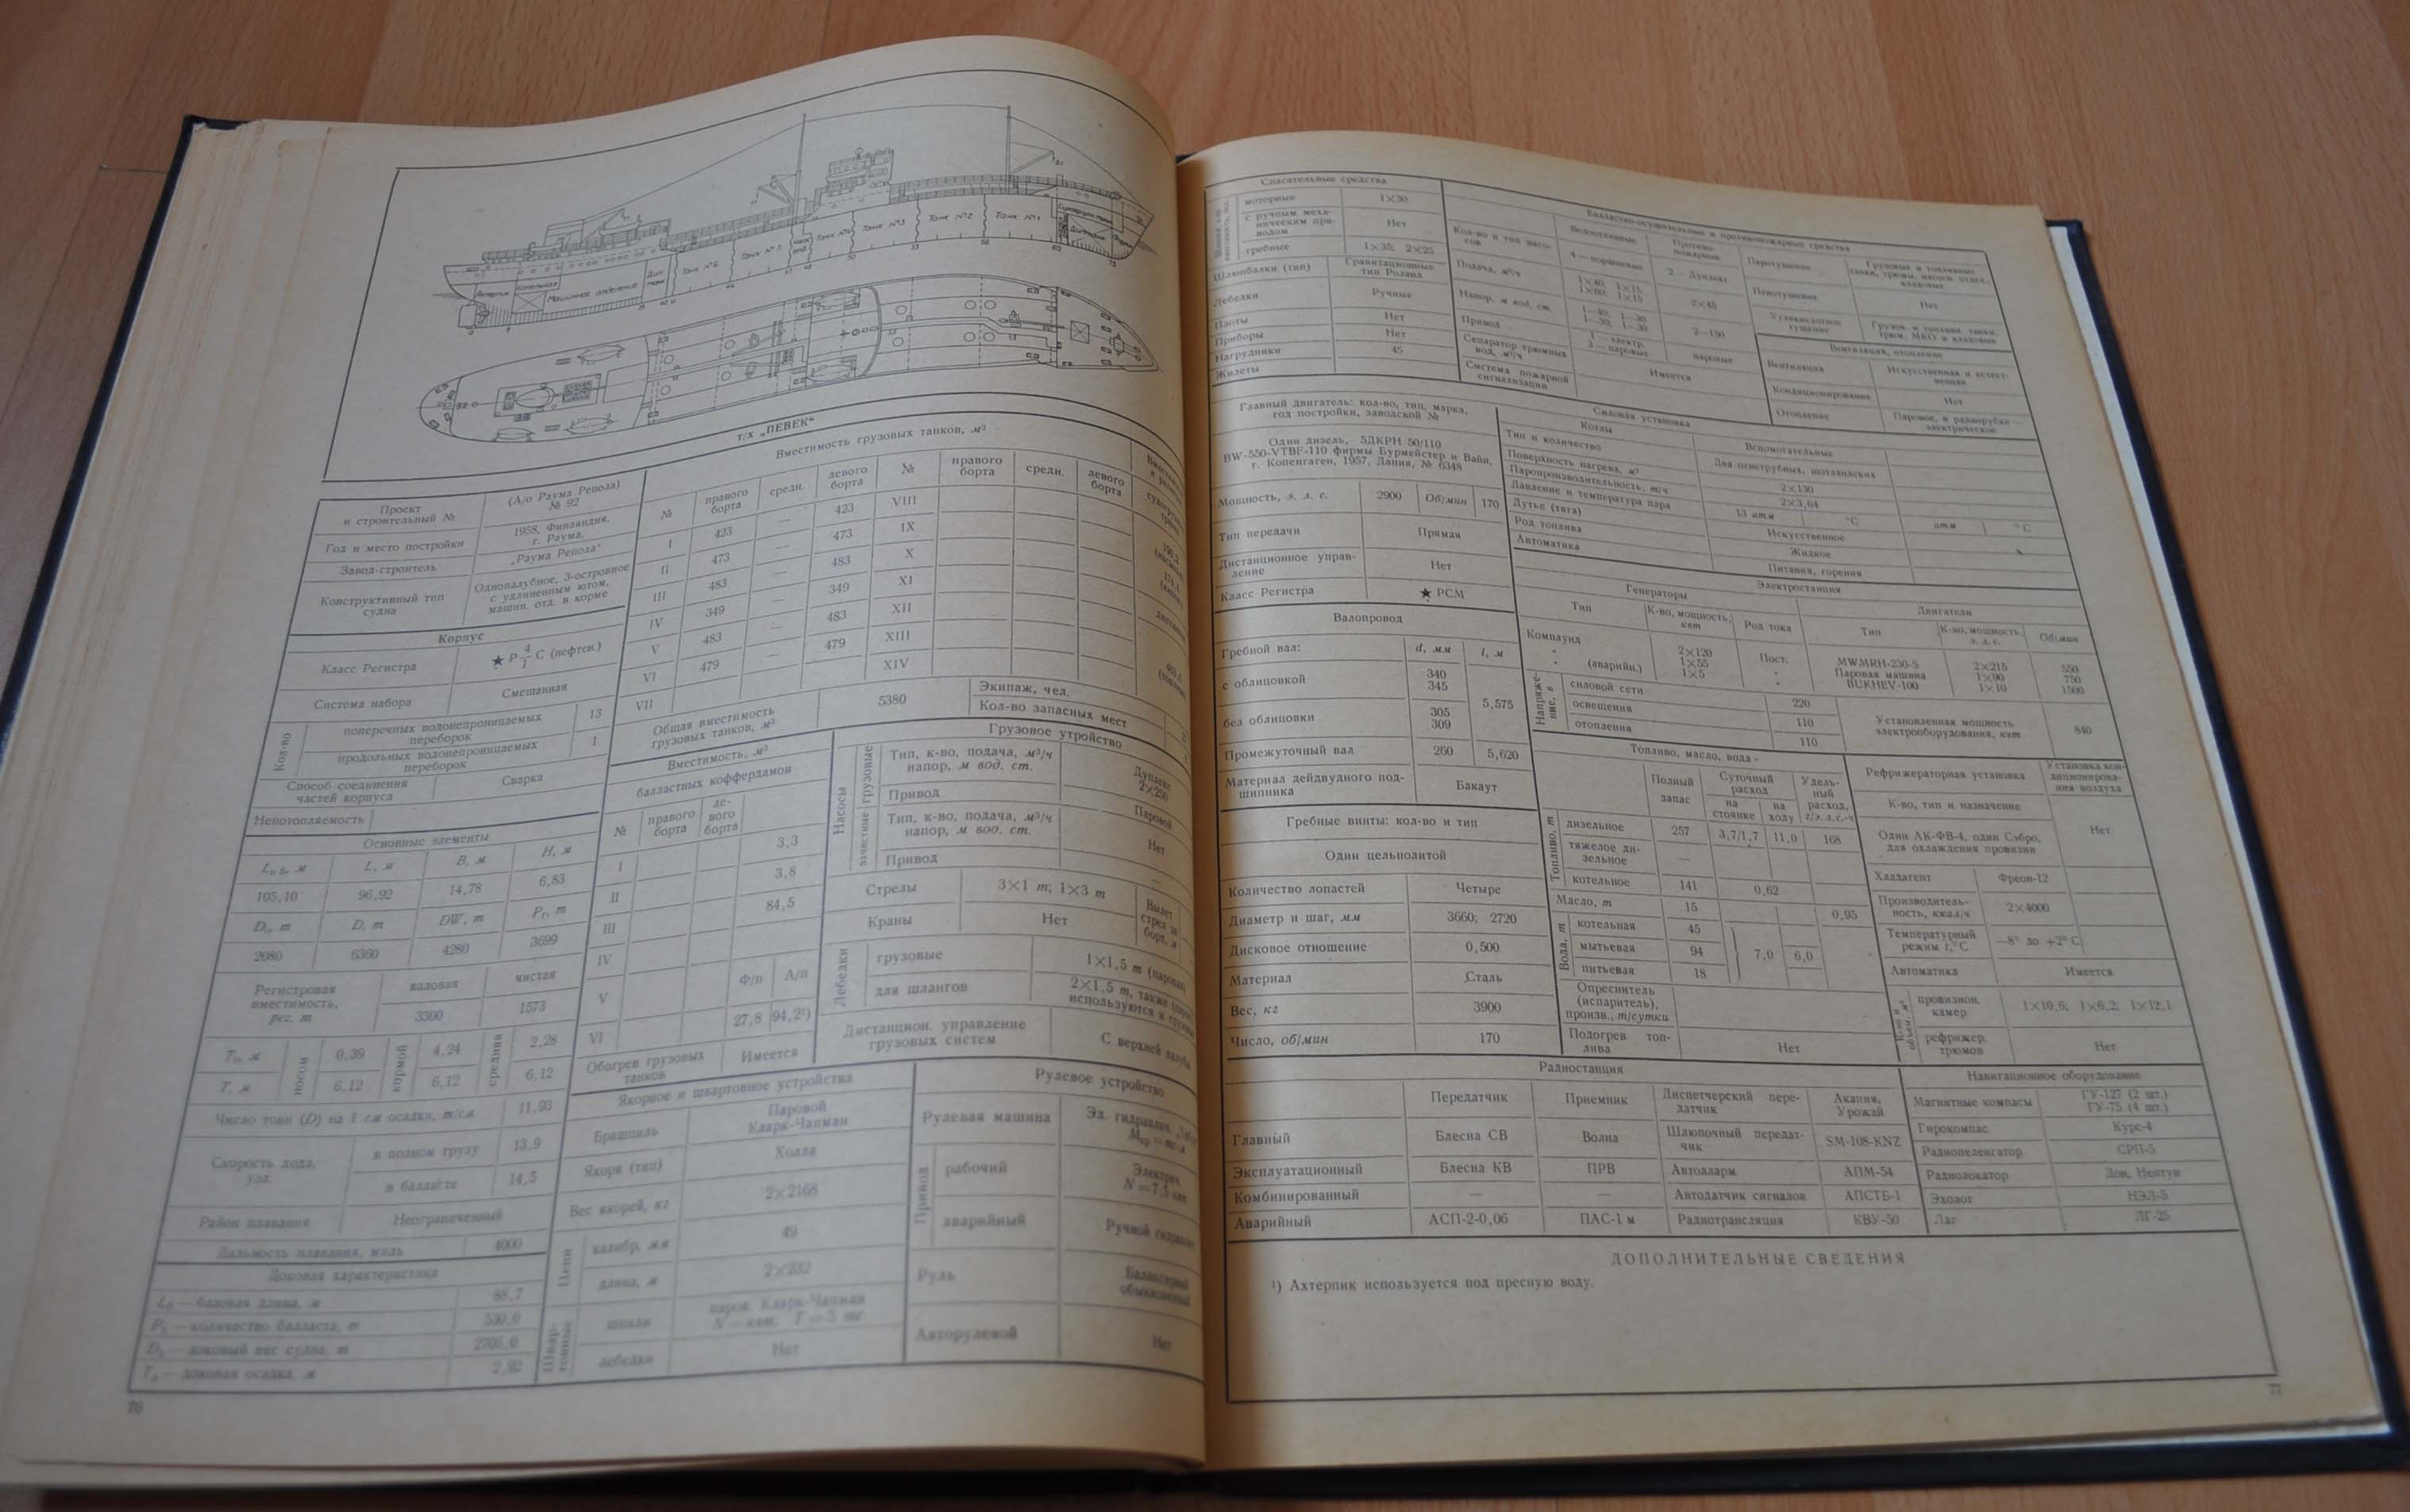 Ахтерпик Котельная Машинное отделение Танк №3 Танк №2 Танк №1
т/х „ПЕВЕК“
Проект и строительный № (А/о Раума Репола) № 92
Год и место постройки 1958, Финляндия, г. Раума,
Завод-строитель „Раума Репола“
Конструктивный тип судна Однопалубное, 3-островное с удлиненным ютом, машин. отд. в корме
Корпус
Класс Регистра ★ Р 4/1 С (нефтен.)
Система набора Смешанная
Кол-во поперечных водонепроницаемых переборок 13
продольных водонепроницаемых переборок 1
Способ соединения частей корпуса Сварка
Непотопляемость
Основные элементы
Lнб, м L, м B, м H, м
105,10 96,92 14,78 6,83
D₀, т D, т DW, т Pг, т
2080 6360 4280 3699
Регистровая вместимость, рег. т валовая чистая
3300 1573
T₀, м носом 0,39 кормой 4,24 средняя 2,28
T, м 6,12 6,12 6,12
Число тонн (D) на 1 см осадки, т/см 11,93
Скорость хода, узл. в полном грузу 13,9
в балласте 14,5
Район плавания Неограниченный
Дальность плавания, миль 4000
Доковая характеристика
— базовая длина, м 85,7
— количество балласта, т 530,0
— доковый вес судна, т
— доковая осадка, м 2,92
Вместимость грузовых танков, м³
№ правого борта средн. левого борта № правого борта средн. левого борта
I 423 — 423 VIII
II 473 — 473 IX
III 483 — 483 X
IV 349 — 349 XI
V 483 — 483 XII
VI 479 — 479 XIII
VII XIV
Общая вместимость грузовых танков, м³ 5380
Экипаж, чел.
Кол-во запасных мест
Вместимость, м³
балластных коффердамов
№ правого борта левого борта
I 3,3
II 3,8
III 84,5
IV
V Ф/п А/п
VI 27,8 94,2¹)
Обогрев грузовых танков Имеется
Грузовое утройство
Насосы грузовые Тип, к-во, подача, м³/ч напор, м вод. ст. Дуплекс 2×250
Привод Паровой
зачистные Тип, к-во, подача, м³/ч напор, м вод. ст. Нет
Привод —
Стрелы 3×1 т; 1×3 т
Краны Нет
Вылет стрел за борт, м
Лебедки грузовые 1×1,5 т (паровая)
для шлангов 2×1,5 т, также
используются и
Дистанцион. управление грузовых систем С верхней палубы
Якорное и швартовное устройства
Брашпиль Паровой Кларк-Чапман
Якоря (тип) Холла
Вес якорей, кг 2×2168
Цепи калибр, мм 49
длина, м 2×232
Швартовные шпили паров. Кларк-Чапман
лебедки Нет
Рулевое устройство
Рулевая машина Эл. гидравлич.
Привод рабочий Электрич. N = 7,5 квт
аварийный Ручной гидравл
Руль Балансирный обыкновенный
Авторулевой Нет
76
Спасательные средства
моторные 1×30
с ручным механическим приводом Нет
гребные 1×35; 2×25
Шлюпбалки (тип) Гравитационные тип Роланд
Лебедки Ручные
Плоты Нет
Приборы Нет
Нагрудники 45
Жилеты
Балластно-осушительные и противопожарные средства
Кол-во и тип насосов Водоотливные 4 — поршневые Противопожарные 2 — Дуплекс
Подача, м³/ч 1×40; 1×15 1×60; 1×15 2×45
Напор, м вод. ст. 1—40; 1—30 1—30; 1—30 2—150
Привод 1 — электр. 3 — паровые паровые
Сепаратор трюмных вод, м³/ч
Система пожарной сигнализации Имеется
Паротушение Грузовые и топливные танки, трюмы,
Пенотушение Нет
Углекислотное тушение
Вентиляция, отопление
Вентиляция Искусственная и естественная
Кондиционирование Нет
Отопление Паровое, в радиорубке — электрическое
Силовая установка
Главный двигатель: кол-во, тип, марка, год постройки, заводской №
Один дизель, 5ДКРН 50/110
BW-550-VTBF-110 фирмы Бурмейстер и Вайн,
г. Копенгаген, 1957, Дания, № 6348
Мощность, э. л. с. 2900 Об/мин 170
Тип передачи Прямая
Дистанционное управление Нет
Класс Регистра ★ РСМ
Котлы Вспомогательные
Тип и количество Два огнетрубных, шотландских
Поверхность нагрева, м² 2×130
Паропроизводительность, т/ч 2×3,64
Давление и температура пара 13 атм °С атм °С
Дутье (тяга) Искусственное
Род топлива Жидкое
Автоматика Питания, горения
Валопровод
Гребной вал: d, мм l, м
с облицовкой 340 345
5,575
без облицовки 305 309
Промежуточный вал 260 5,620
Материал дейдвудного подшипника Бакаут
Гребные винты: кол-во и тип
Один цельнолитой
Количество лопастей Четыре
Диаметр и шаг, мм 3660; 2720
Дисковое отношение 0,500
Материал Сталь
Вес, кг 3900
Число, об/мин 170
Электростанция
Генераторы Двигатели
Тип К-во, мощность, квт Род тока Тип К-во, мощность, э. л. с. Об/мин
Компаунд 2×120 Пост. MWMRH-230-S 2×215 550
„ 1×55 „ Паровая машина 1×90 750
„ (аварийн.) 1×5 „ BUKHEV-100 1×10 1500
Напряжение, в силовой сети 220
освещения 110
отопления 110
Установленная мощность электрооборудования, квт 840
Топливо, масло, вода
Полный запас Суточный расход на стоянке на ходу Удельный расход, г/э. л. с.-ч
Топливо, т дизельное 257 3,7/1,7 11,0 168
тяжелое дизельное —
котельное 141 0,62
Масло, т 15 0,95
Вода, т котельная 45
мытьевая 94 7,0 6,0
питьевая 18
Опреснитель (испаритель), произв., т/сутки
Подогрев топлива Нет
Рефрижераторная установка Установка кондиционирования воздуха
К-во, тип и назначение
Один АК-ФВ-4, один Сабро, для охлаждения провизии Нет
Хладагент Фреон-12
Производительность, ккал/ч 2×4000
Температурный режим t,°С —8° до +2° С
Автоматика Имеется
К-во и объем, м³ провизион. камер 1×10,6; 1×6,2; 1×12,1
рефрижер. трюмов Нет
Радиостанция
Передатчик Приемник Диспетчерский передатчик Акация, Урожай
Главный Блесна СВ Волна Шлюпочный передатчик SM-108-KNZ
Эксплуатационный Блесна КВ ПРВ Автоаларм АПМ-54
Комбинированный — — Автодатчик сигналов АПСТБ-1
Аварийный АСП-2-0,06 ПАС-1 м Радиотрансляция КВУ-50
Навигационное оборудование
Магнитные компасы ГУ-127 (2 шт.) ГУ-75 (4 шт.)
Гирокомпас Курс-4
Радиопеленгатор СРП-5
Радиолокатор Дон, Нептун
Эхолот НЭЛ-5
Лаг ЛГ-25
ДОПОЛНИТЕЛЬНЫЕ СВЕДЕНИЯ
¹) Ахтерпик используется под пресную воду.
77